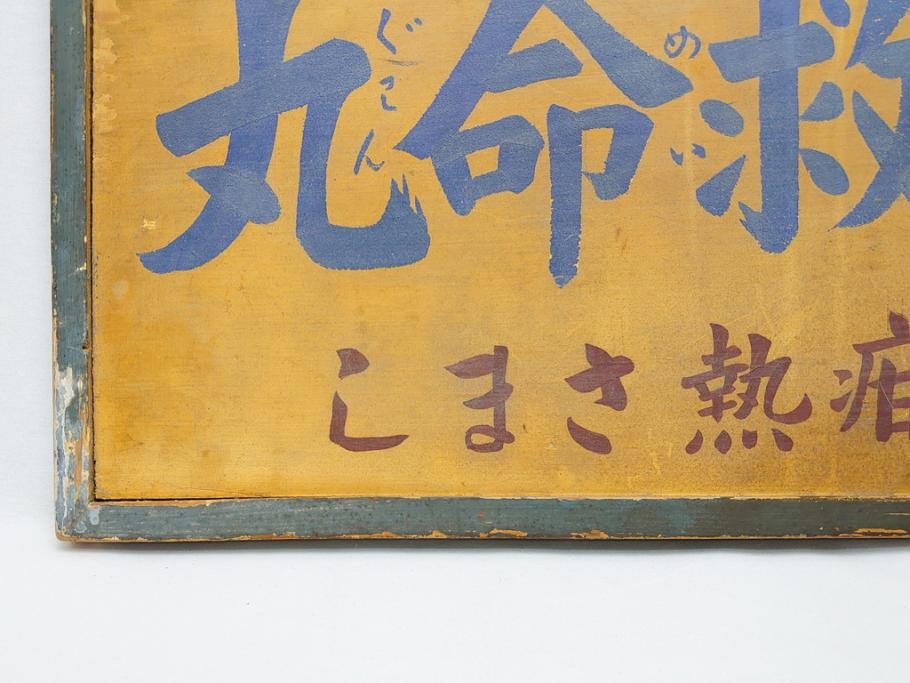 救命丸
めい
ぐわん
疳熱さまし